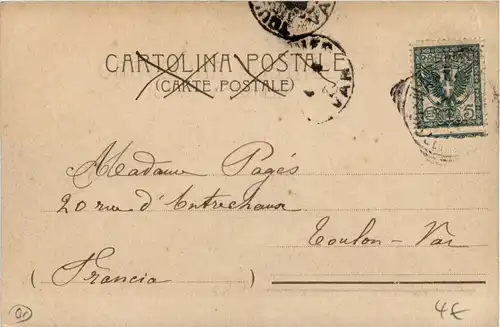 CARTOLINA POSTALE
(CARTE POSTALE)
VAR
5
Madame Pagés
20 rue d'Antrechaux
Toulon - Var
(Francia)
Or
4€